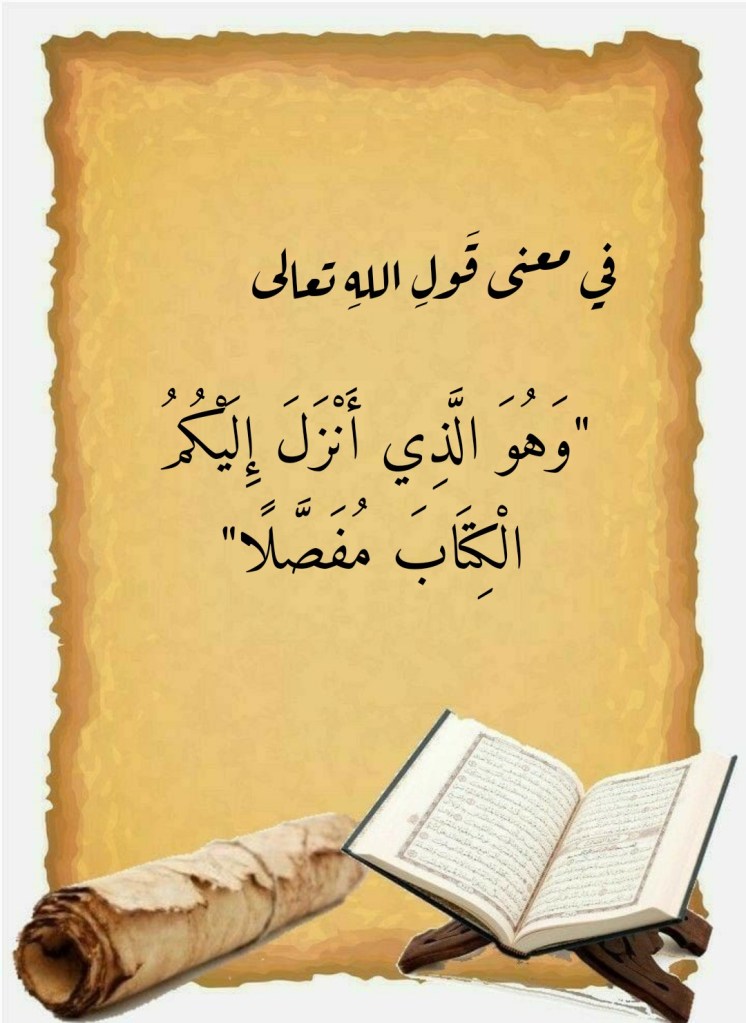 في معنى قَولِ اللهِ تعالى
"وَهُوَ الَّذِي أَنْزَلَ إِلَيْكُمُ
الْكِتَابَ مُفَصَّلًا"